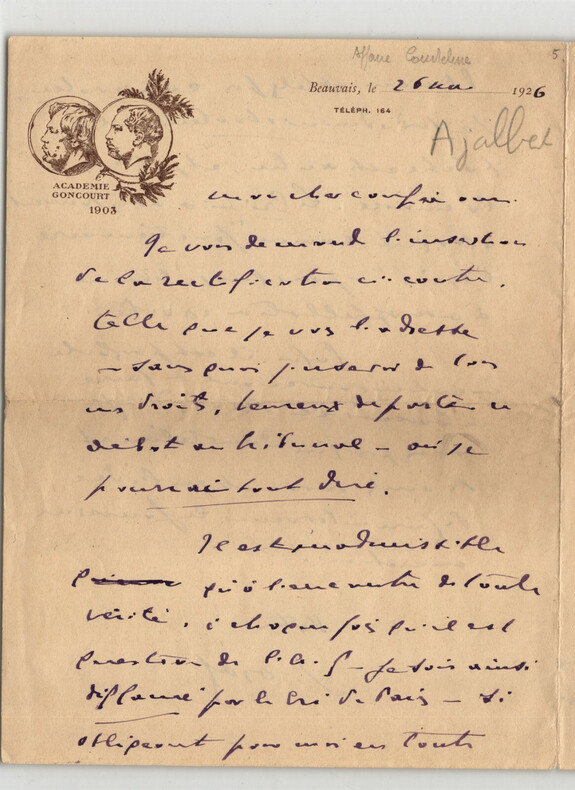 Affaire Courteline
5.
Beauvais, le 26 1926
TÉLÉPH. 164
Ajalbert
ACADEMIE
GONCOURT
1903
mon cher confrère
Je vous demande l'insertion
de la rectification ci-contre,
telle que je vous l'adresse
– sans quoi j'userai de tous
mes droits, heureux de porter ce
débat au tribunal – où je
pourrai tout dire.
Il est inadmissible
qu'à l'encontre de toute
vérité, à chaque fois qu'il est
question de – je sois ainsi
diffamé par le Cri de Paris – si
obligeant pour moi en toute